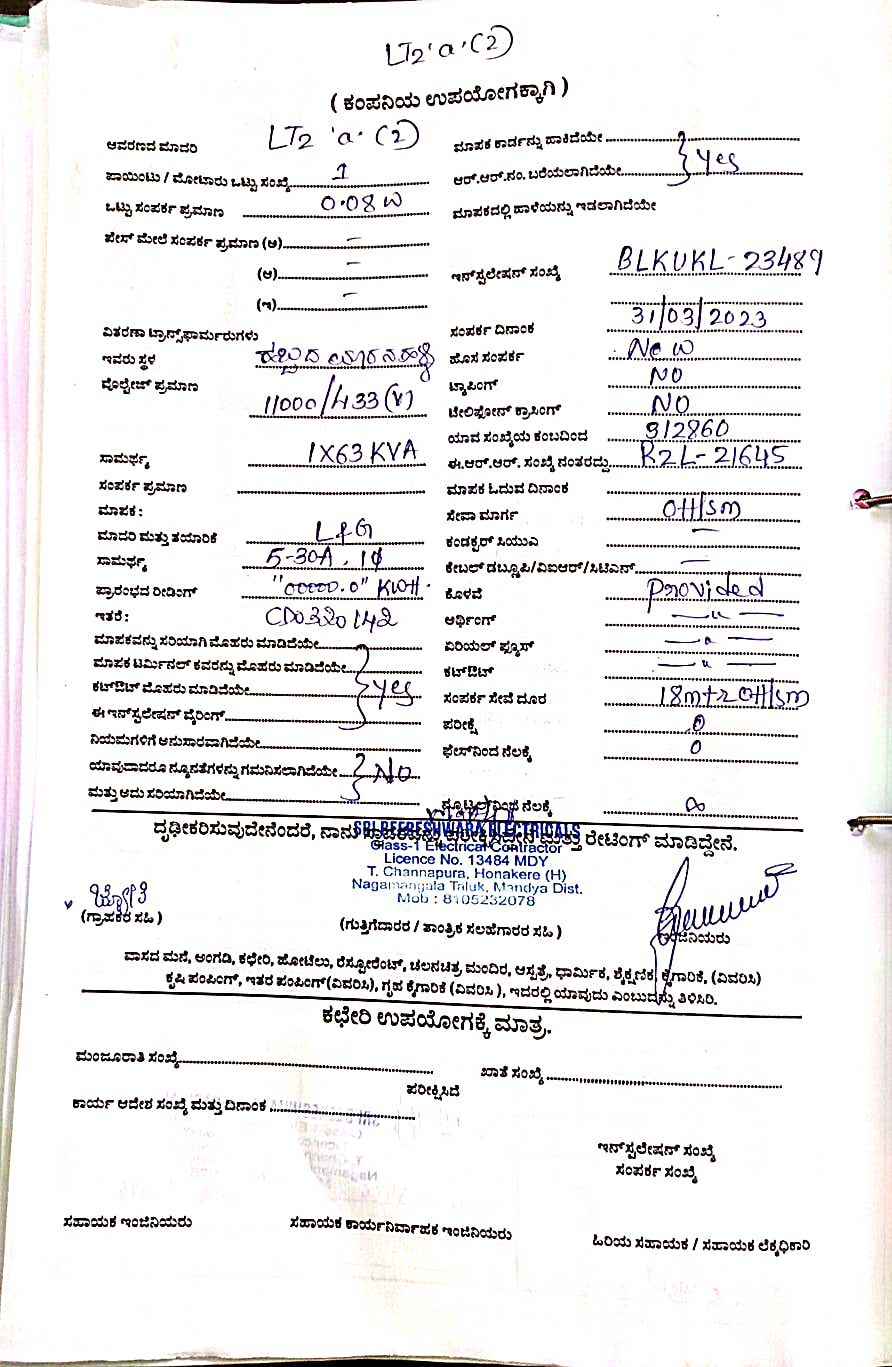 LT2 'a' (2)
( ಕಂಪನಿಯ ಉಪಯೋಗಕ್ಕಾಗಿ )
ಆವರಣದ ಮಾದರಿ LT2 'a' (2)
ಪಾಯಿಂಟು / ಮೋಟಾರು ಒಟ್ಟು ಸಂಖ್ಯೆ 1
ಒಟ್ಟು ಸಂಪರ್ಕ ಪ್ರಮಾಣ 0.08 W
ಫೇಸ್ ಮೇಲೆ ಸಂಪರ್ಕ ಪ್ರಮಾಣ (ಅ) –
(ಆ) –
(ಇ) –
ವಿತರಣಾ ಟ್ರಾನ್ಸ್‌ಫಾರ್ಮರುಗಳು
ಇವರು ಸ್ಥಳ
ವೊಲ್ಟೇಜ್ ಪ್ರಮಾಣ
11000/433 (V)
ಸಾಮರ್ಥ್ಯ 1X63 KVA
ಸಂಪರ್ಕ ಪ್ರಮಾಣ
ಮಾಪಕ :
ಮಾದರಿ ಮತ್ತು ತಯಾರಿಕೆ L&G
ಸಾಮರ್ಥ್ಯ 5-30A, 1ϕ
ಪ್ರಾರಂಭದ ರೀಡಿಂಗ್ "00000.0" KWH.
ಇತರೆ : CD0320142
ಮಾಪಕವನ್ನು ಸರಿಯಾಗಿ ಮೊಹರು ಮಾಡಿದೆಯೇ
ಮಾಪಕ ಟರ್ಮಿನಲ್ ಕವರನ್ನು ಮೊಹರು ಮಾಡಿದೆಯೇ
ಕಟ್‌ಔಟ್ ಮೊಹರು ಮಾಡಿದೆಯೇ Yes
ಈ ಇನ್‌ಸ್ಟಲೇಷನ್ ವೈರಿಂಗ್
ನಿಯಮಗಳಿಗೆ ಅನುಸಾರವಾಗಿದೆಯೇ
ಯಾವುದಾದರೂ ನ್ಯೂನತೆಗಳನ್ನು ಗಮನಿಸಲಾಗಿದೆಯೇ NO
ಮತ್ತು ಅದು ಸರಿಯಾಗಿದೆಯೇ
ಮಾಪಕ ಕಾರ್ಡನ್ನು ಹಾಕಿದೆಯೇ
ಆರ್.ಆರ್.ನಂ. ಬರೆಯಲಾಗಿದೆಯೇ Yes
ಮಾಪಕದಲ್ಲಿ ಹಾಳೆಯನ್ನು ಇಡಲಾಗಿದೆಯೇ
ಇನ್‌ಸ್ಟಲೇಷನ್ ಸಂಖ್ಯೆ BLKUKL-23489
ಸಂಪರ್ಕ ದಿನಾಂಕ 31/03/2023
ಹೊಸ ಸಂಪರ್ಕ New
ಟ್ಯಾಪಿಂಗ್ NO
ಟೇಲಿಫೋನ್ ಕ್ರಾಸಿಂಗ್ NO
ಯಾವ ಸಂಖ್ಯೆಯ ಕಂಬದಿಂದ 912860
ಈ.ಆರ್.ಆರ್. ಸಂಖ್ಯೆ ನಂತರದ್ದು R2L-21645
ಮಾಪಕ ಓದುವ ದಿನಾಂಕ
ಸೇವಾ ಮಾರ್ಗ OH/sm
ಕಂಡಕ್ಟರ್ ಸಿಯುವಿ –
ಕೇಬಲ್ ಡಬ್ಲ್ಯೂಪಿ/ವಿಐಆರ್/ಸಿಟಿಎಸ್ –
ಕೊಳವೆ Provided
ಅರ್ಥಿಂಗ್ — " —
ಏರಿಯಲ್ ಫ್ಯೂಸ್ — " —
ಕಟ್‌ಔಟ್ — " —
ಸಂಪರ್ಕ ಸೇವೆ ದೂರ 18m+2 OH/sm
ಪರೀಕ್ಷೆ 0
ಫೇಸ್‌ನಿಂದ ನೆಲಕ್ಕೆ 0
ನ್ಯೂಟ್ರಲ್‌ನಿಂದ ನೆಲಕ್ಕೆ ∞
ದೃಢೀಕರಿಸುವುದೇನೆಂದರೆ, ನಾನು ಮತ್ತು ರೇಟಿಂಗ್ ಮಾಡಿದ್ದೇನೆ.
SRI BEERESHWARA ELECTRICALS
Class-1 Electrical Contractor
Licence No. 13484 MDY
T. Channapura, Honakere (H)
Nagamangala Taluk, Mandya Dist.
Mob : 8105232078
ಜ್ಯೋತಿ
(ಗ್ರಾಹಕರ ಸಹಿ )
(ಗುತ್ತಿಗೆದಾರರ / ತಾಂತ್ರಿಕ ಸಲಹೆಗಾರರ ಸಹಿ )
ಇಂಜಿನಿಯರು
ವಾಸದ ಮನೆ, ಅಂಗಡಿ, ಕಛೇರಿ, ಹೋಟೆಲು, ರೆಸ್ಟೋರೆಂಟ್, ಚಲನಚಿತ್ರ ಮಂದಿರ, ಆಸ್ಪತ್ರೆ, ಧಾರ್ಮಿಕ, ಶೈಕ್ಷಣಿಕ, ಕೈಗಾರಿಕೆ, (ವಿವರಿಸಿ)
ಕೃಷಿ ಪಂಪಿಂಗ್, ಇತರ ಪಂಪಿಂಗ್(ವಿವರಿಸಿ), ಗೃಹ ಕೈಗಾರಿಕೆ (ವಿವರಿಸಿ ), ಇದರಲ್ಲಿ ಯಾವುದು ಎಂಬುದನ್ನು ತಿಳಿಸಿರಿ.
ಕಛೇರಿ ಉಪಯೋಗಕ್ಕೆ ಮಾತ್ರ.
ಮಂಜೂರಾತಿ ಸಂಖ್ಯೆ ಖಾತೆ ಸಂಖ್ಯೆ
ಪರೀಕ್ಷಿಸಿದೆ
ಕಾರ್ಯ ಆದೇಶ ಸಂಖ್ಯೆ ಮತ್ತು ದಿನಾಂಕ
ಇನ್‌ಸ್ಟಲೇಷನ್ ಸಂಖ್ಯೆ
ಸಂಪರ್ಕ ಸಂಖ್ಯೆ
ಸಹಾಯಕ ಇಂಜಿನಿಯರು ಸಹಾಯಕ ಕಾರ್ಯನಿರ್ವಾಹಕ ಇಂಜಿನಿಯರು ಹಿರಿಯ ಸಹಾಯಕ / ಸಹಾಯಕ ಲೆಕ್ಕಧಿಕಾರಿ